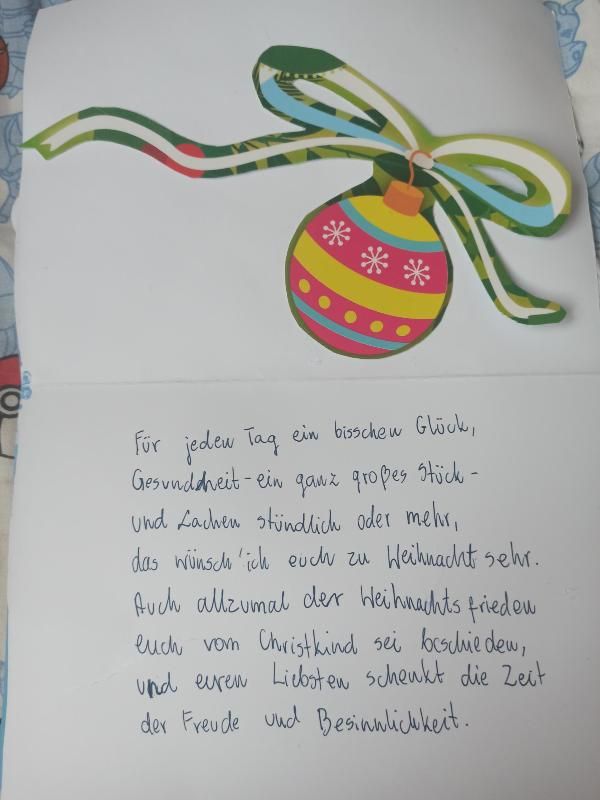 Für jeden Tag ein bisschen Glück,
Gesundheit - ein ganz großes Stück -
und Lachen stündlich oder mehr,
das wünsch' ich euch zu Weihnacht sehr.
Auch allzumal der Weihnachtsfrieden
euch vom Christkind sei beschieden,
und euren Liebsten schenkt die Zeit
der Freude und Besinnlichkeit.